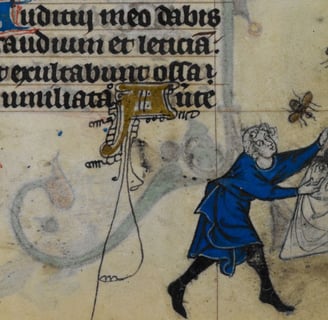 Auditui meo dabis
gaudium et leticiã.
et exultabunt ossa ⁊
umiliata Ante